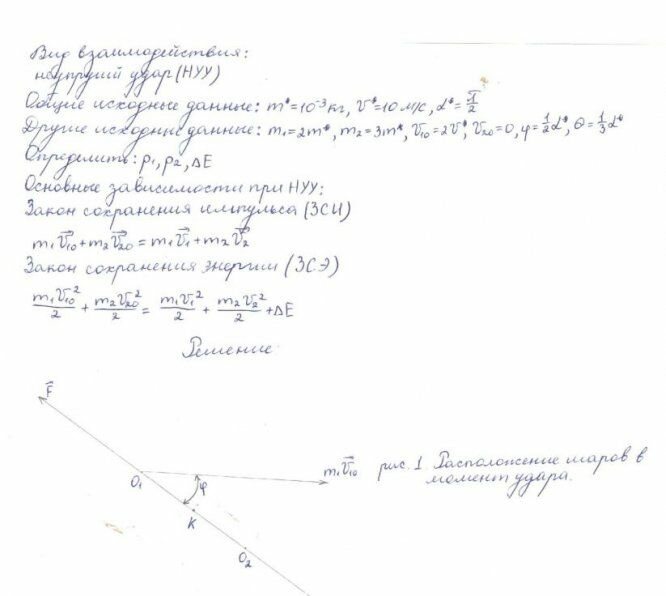 Вид взаимодействия:
неупругий удар (НУУ)
Общие исходные данные: m*=10⁻³кг, V*=10 м/с, α*=π/2
Другие исходные данные: m₁=2m*, m₂=3m*, V₁₀=2V*, V₂₀=0, φ=1/2α*, θ=1/3α*
Определить: p₁, p₂, ΔE
Основные зависимости при НУУ:
Закон сохранения импульса (ЗСИ)
m₁V⃗₁₀+m₂V⃗₂₀=m₁V⃗₁+m₂V⃗₂
Закон сохранения энергии (ЗСЭ)
m₁V₁₀²/2 + m₂V₂₀²/2 = m₁V₁²/2 + m₂V₂²/2 +ΔE
Решение
F⃗
O₁
φ
K
O₂
m₁V⃗₁₀
рис. 1. Расположение шаров в
момент удара.